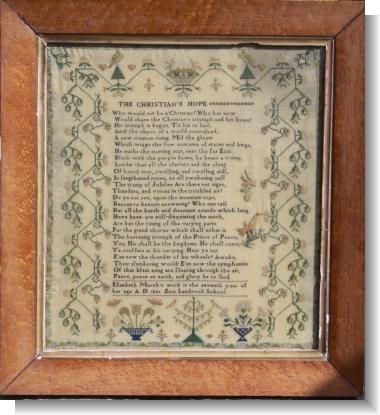 THE CHRISTIAN'S HOPE
Who would not be a Christian? Who but now
Would share the Christian's triumph and his hope?
His triumph is begun. Tis his to hail,
Amid the chaos of a world convulsed,
A new creation rising. Mid the gloom
Which wraps the low concerns of states and kings,
He marks the morning star; sees the far East
Blush with the purple dawn; he hears a trump,
Louder than all the clarions and the clang
Of horrid war, swelling, and swelling still,
In lengthened notes, its all awakening call
The trump of Jubilee. Are there not signs,
Thunders, and voices in the troubled air?
Do ye not see, upon the mountain tops,
Beacon to beacon answering? Who can tell
But all the harsh and dissonant sounds which long
Have been are still disquieting the earth,
Are but the tuning of the varying parts
For the grand chorus which shall usher in
The hastening triumph of the Prince of Peace;
Yes, His shall be the kingdoms. He shall come,
Ye scoffers at his tarrying. Hear ye not
E'en now the thunder of his wheels? Awake,
Thou slumbering world! E'en now the symphonies
Of that blest song are floating through the air,
Peace, peace on earth, and glory be to God.
Elizabeth March's work in the seventh year of
her age A D East Lambrook School.